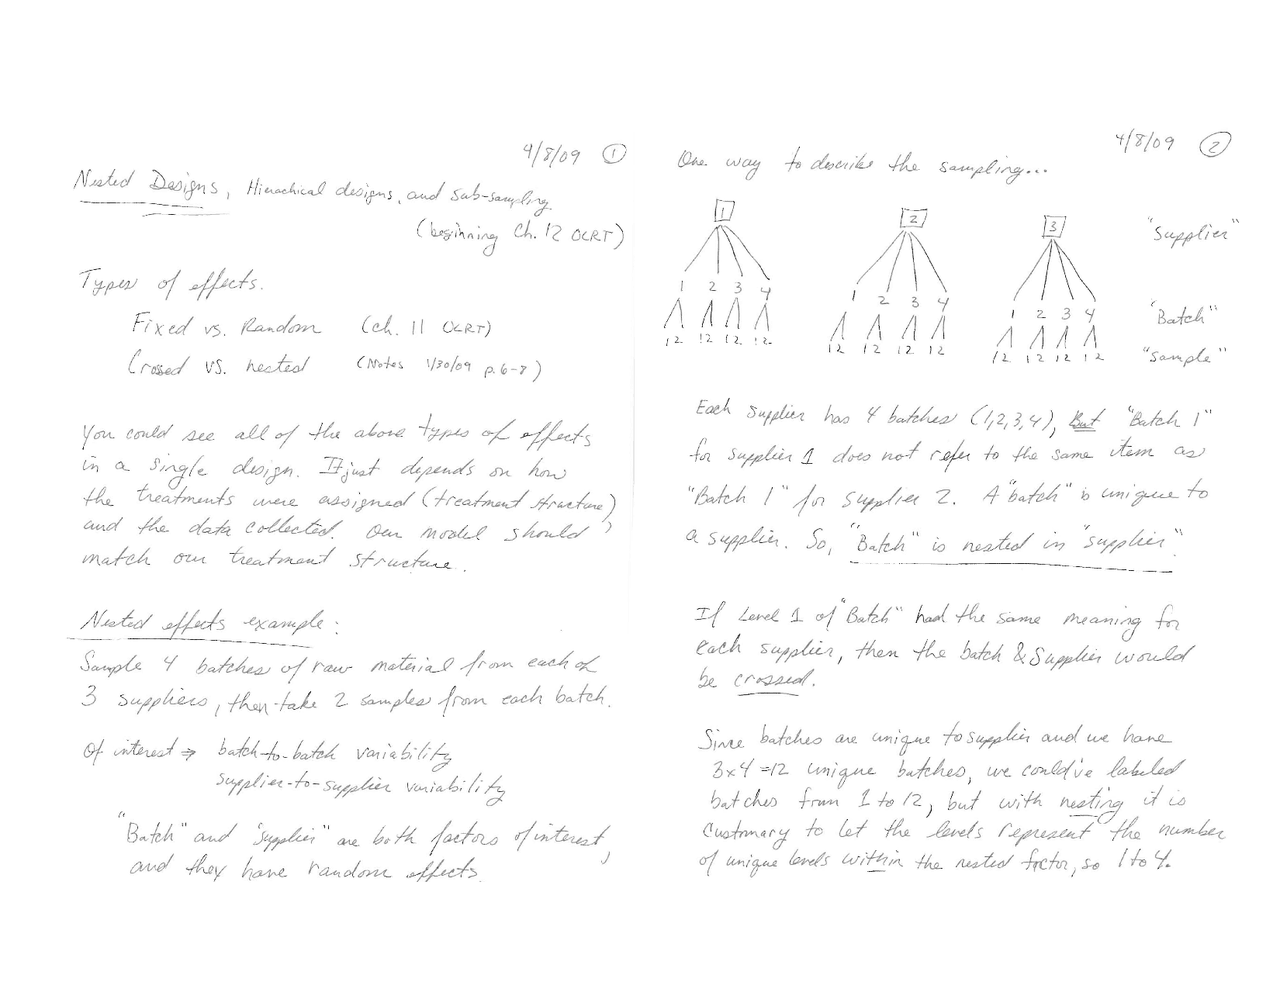 4/8/09 ①
Nested Designs, Hierachical designs, and sub-sampling
(beginning Ch. 12 OLRT)
Types of effects.
Fixed vs. Random (ch. 11 OLRT)
Crossed vs. nested (Notes 1/30/09 p.6-8)
You could see all of the above types of effects
in a single design. It just depends on how
the treatments were assigned (treatment structure),
and the data collected. Our model should
match our treatment structure.
Nested effects example:
Sample 4 batches of raw material from each of
3 suppliers, then take 2 samples from each batch.
Of interest ⇒ batch-to-batch variability
supplier-to-supplier variability
"Batch" and "supplier" are both factors of interest,
and they have random effects.
4/8/09 ②
One way to describe the sampling...
1 2 3 "Supplier"
1 2 3 4 1 2 3 4 1 2 3 4 "Batch"
12 12 12 12 12 12 12 12 12 12 12 12 "sample"
Each supplier has 4 batches (1,2,3,4), But "Batch 1"
for supplier 1 does not refer to the same item as
"Batch 1" for supplier 2. A "batch" is unique to
a supplier. So, "Batch" is nested in "supplier".
If Level 1 of "Batch" had the same meaning for
each supplier, then the batch & Supplier would
be crossed.
Since batches are unique to supplier and we have
3x4=12 unique batches, we could've labeled
batches from 1 to 12, but with nesting it is
customary to let the levels represent the number
of unique levels within the nested factor, so 1 to 4.